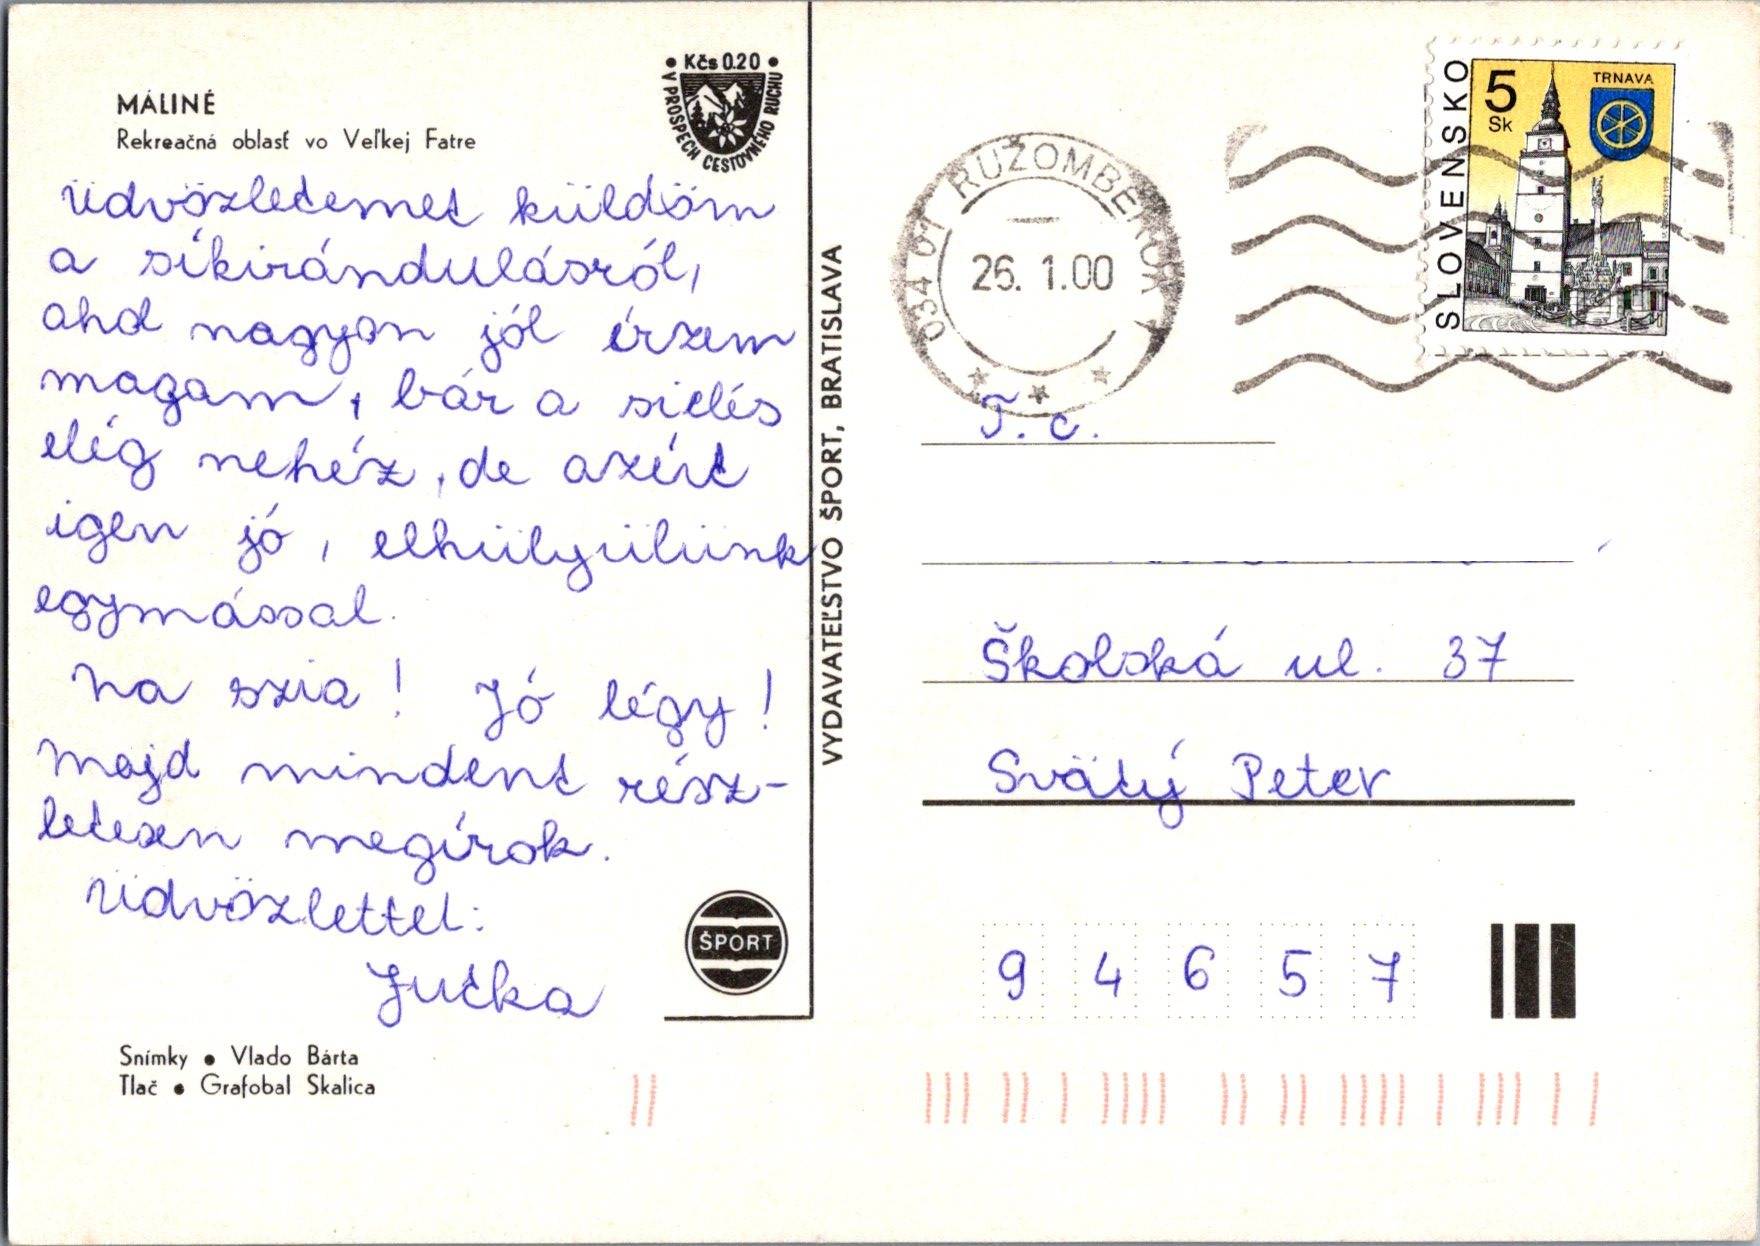 MÁLINÉ
Rekreačná oblasť vo Veľkej Fatre
• Kčs 0.20 •
V PROSPECH CESTOVNÉHO RUCHU
Üdvözletemet küldöm
a síkirándulásról,
ahol nagyon jól érzem
magam, bár a síelés
elég nehéz, de azért
igen jó, elhülyülünk
egymással.
Na szia! Jó légy!
Majd mindent rész-
letesen megírok.
Üdvözlettel:
Jučka
ŠPORT
Snímky • Vlado Bárta
Tlač • Grafobal Skalica
VYDAVATEĽSTVO ŠPORT, BRATISLAVA
034 01 RUŽOMBEROK 1
26. 1.00
SLOVENSKO
5
Sk
TRNAVA
T. c.
Školská ul. 37
Svätý Peter
9 4 6 5 7